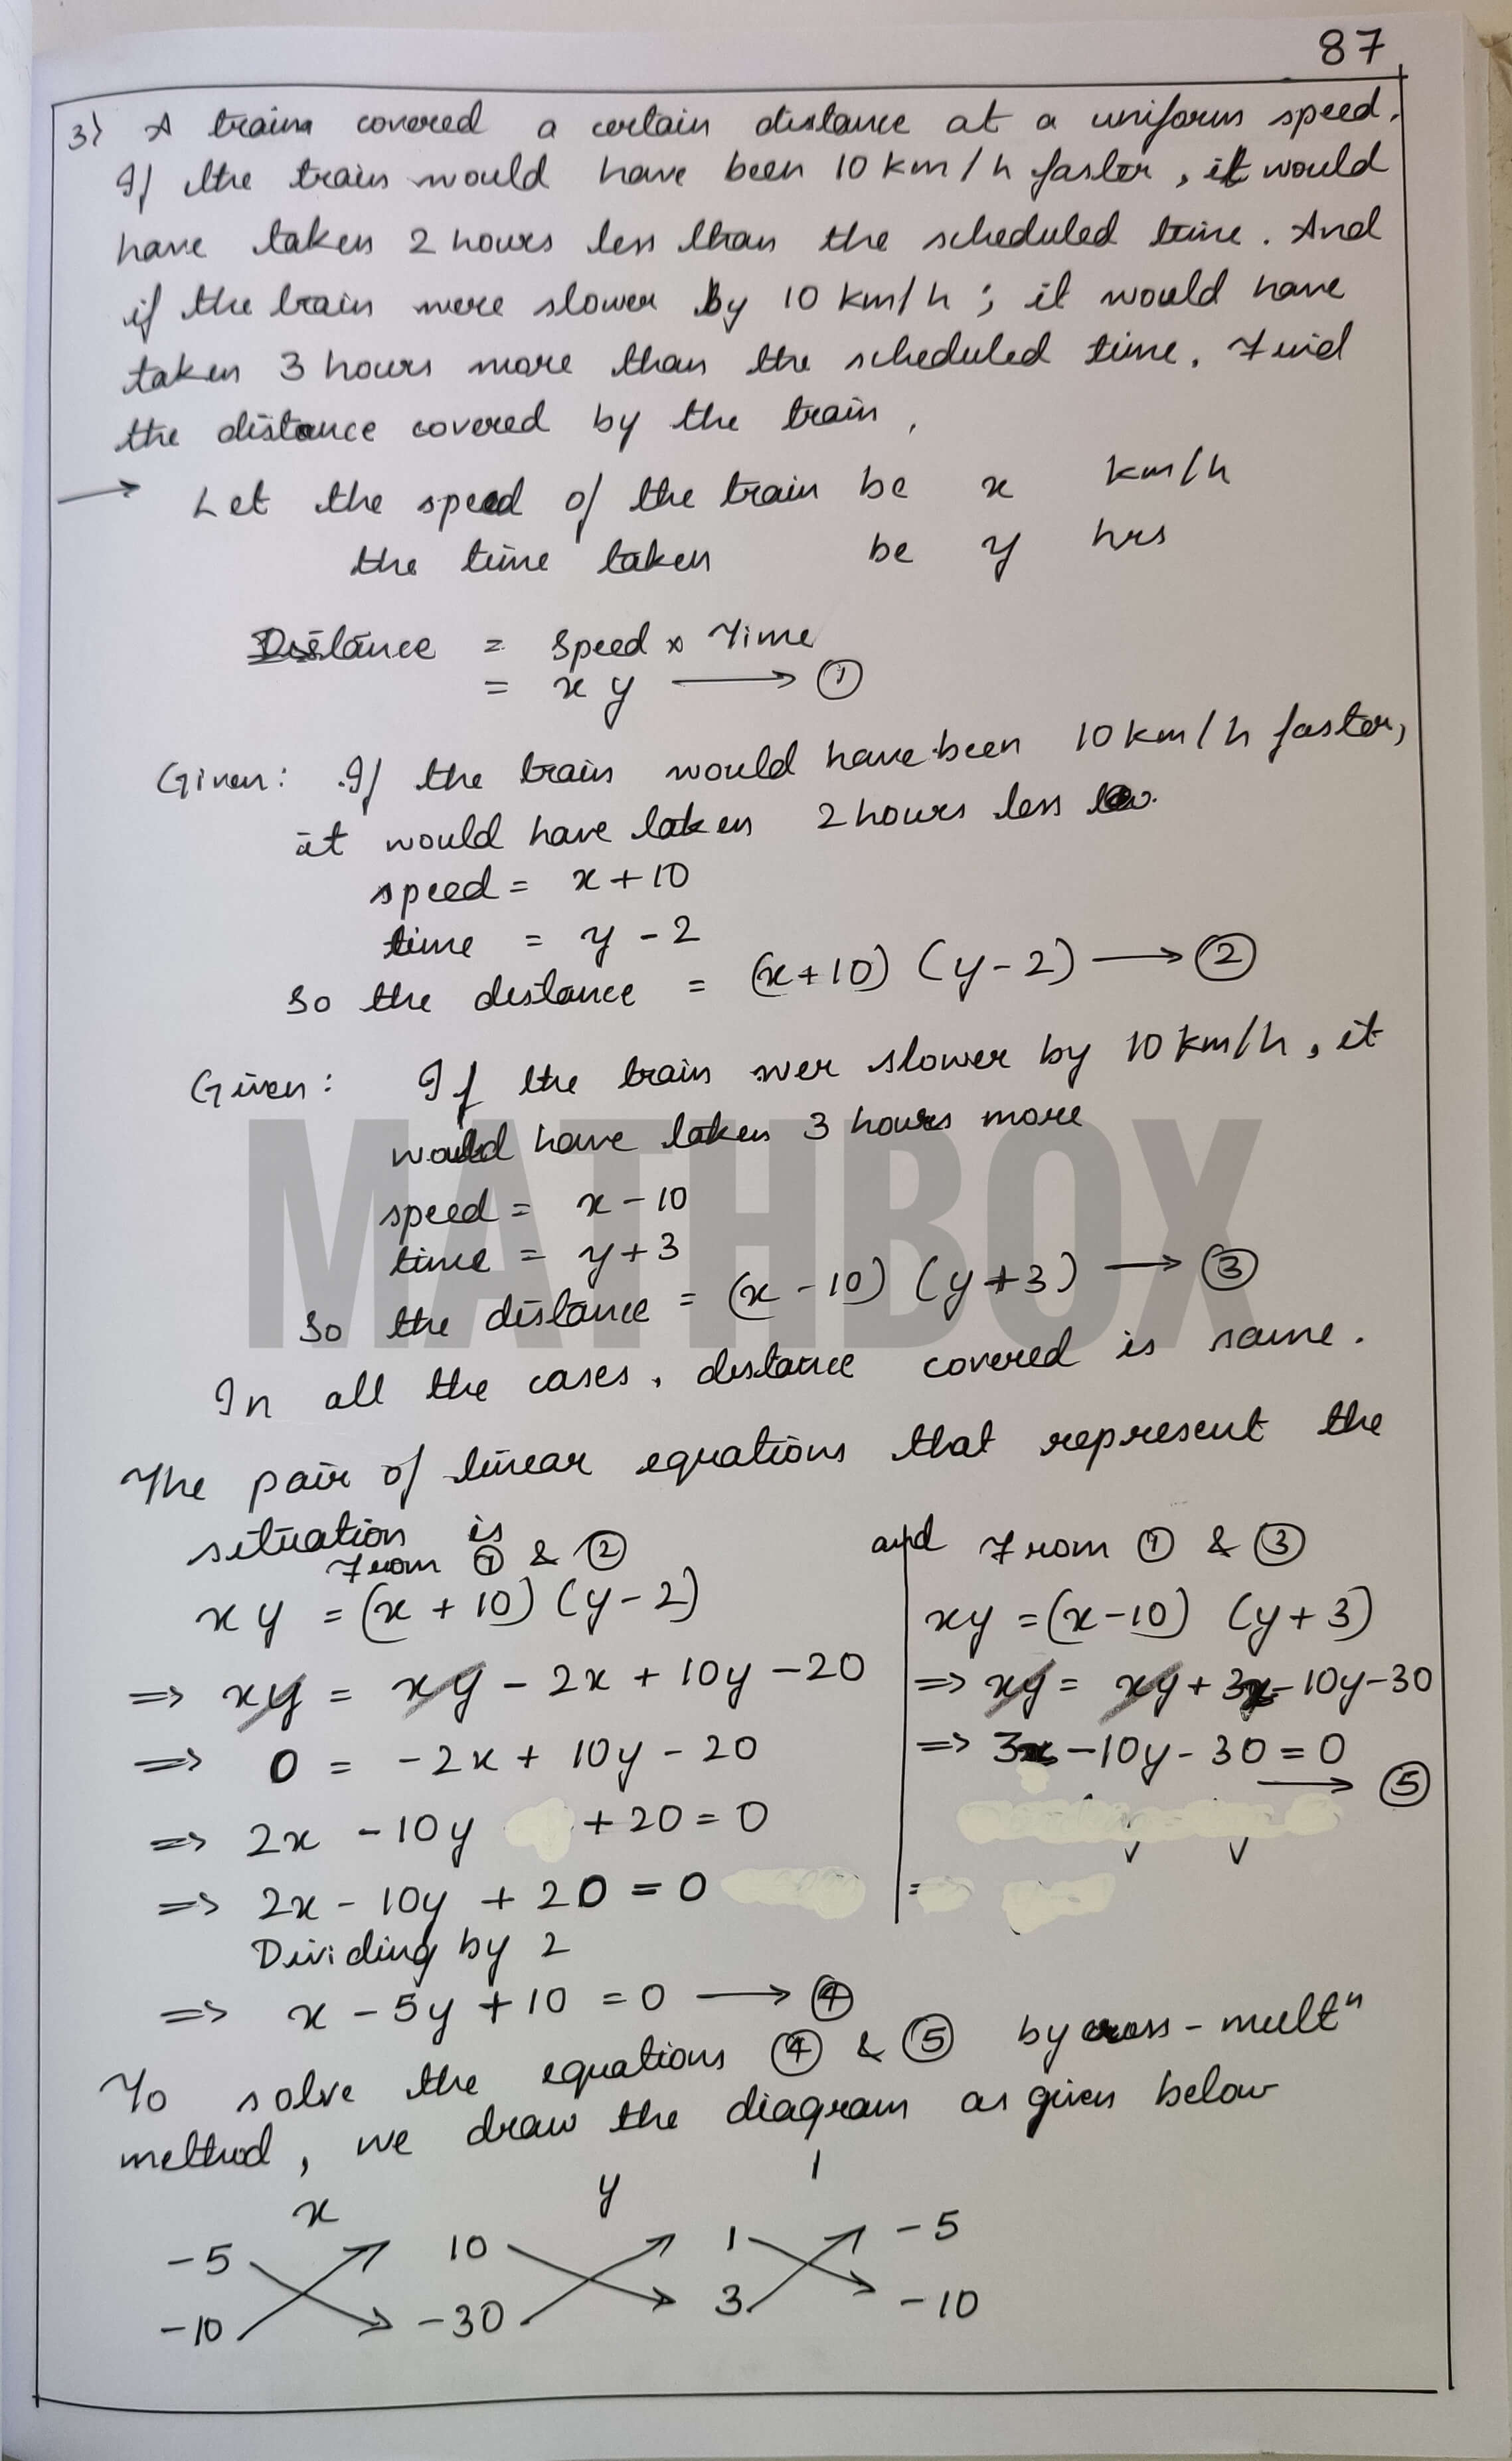 87
3) A train covered a certain distance at a uniform speed.
If the train would have been 10 km/h faster, it would
have taken 2 hours less than the scheduled time. And
if the train were slower by 10 km/h; it would have
taken 3 hours more than the scheduled time. Find
the distance covered by the train.
→ Let the speed of the train be x km/h
the time taken be y hrs
Distance = Speed × Time
= xy → ①
Given: If the train would have been 10 km/h faster,
it would have taken 2 hours less
speed = x + 10
time = y - 2
So the distance = (x+10) (y-2) → ②
Given: If the train wer slower by 10 km/h, it
would have taken 3 hours more
speed = x - 10
time = y + 3
So the distance = (x-10) (y+3) → ③
In all the cases, distance covered is same.
The pair of linear equations that represent the
situation is
From ① & ②
xy = (x + 10) (y - 2)
=> xy = xy - 2x + 10y - 20
=> 0 = -2x + 10y - 20
=> 2x - 10y + 20 = 0
=> 2x - 10y + 20 = 0
Dividing by 2
=> x - 5y + 10 = 0 → ④
and From ① & ③
xy = (x-10) (y+3)
=> xy = xy + 3x - 10y - 30
=> 3x - 10y - 30 = 0
→ ⑤
To solve the equations ④ & ⑤ by cross-multⁿ
method, we draw the diagram as given below
x y 1
-5 10 1 -5
-10 -30 3 -10
MATHBOX